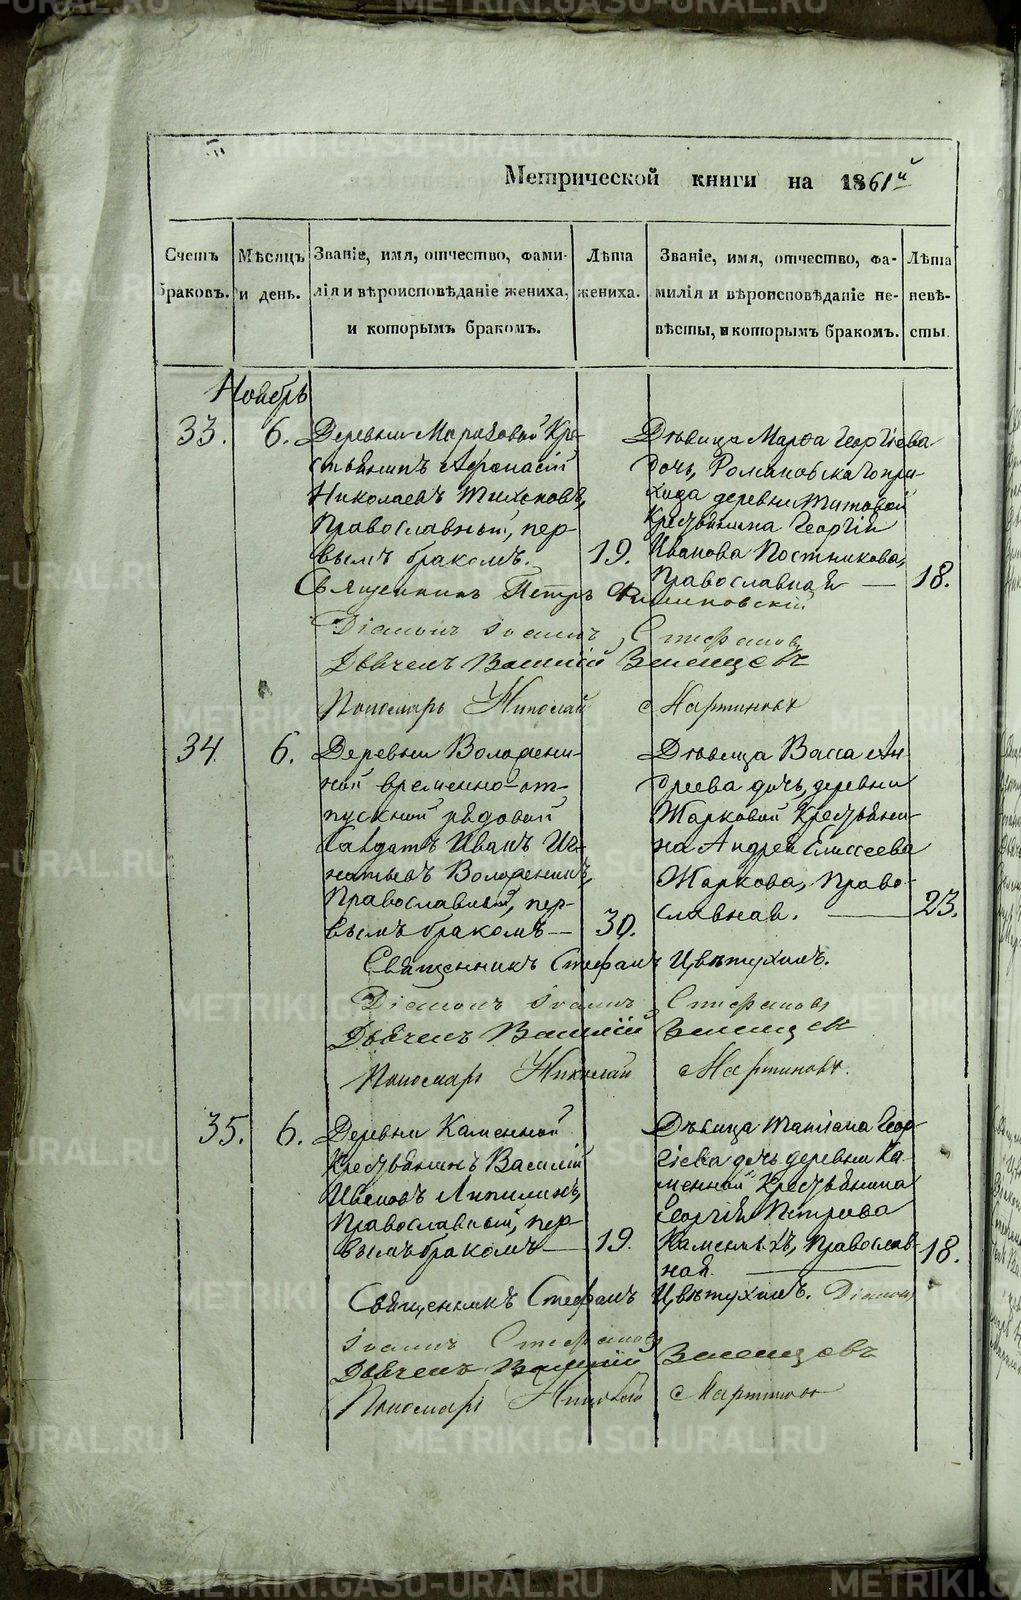 Метрической книги на 1861й
Счетъ браковъ.
Мѣсяцъ и день.
Званіе, имя, отчество, фами-
лія и вѣроисповѣданіе жениха,
и которымъ бракомъ.
Лѣта
жениха.
Званіе, имя, отчество, фа-
милія и вѣроисповѣданіе не-
вѣсты, и которымъ бракомъ.
Лѣта
невѣ-
сты.
Ноябрь
33. 6.
Деревни Кре-
стьянинъ Афонасій
Николаевъ Тихоновъ,
Православный, пер-
вымъ бракомъ. 19.
Дѣвица Марѳа Георгіева
дочь, Романовскаго при-
хода деревни Титовой
Крестьянина Георгія
Иванова Постникова,
Православная — 18.
Священникъ Петръ
Діаконъ Іоаннъ Стефановъ
Дьячекъ Василій Зеленцовъ
Пономарь Николай Мартиновъ
34. 6.
Деревни Волокени-
ной временно-от-
пускной рядовой
Салдатъ Иванъ Иг-
натьевъ Волокенинъ,
Православный, пер-
вымъ бракомъ — 30.
Дѣвица Васса Ан-
дреева дочь, деревни
Жарковой Крестьяни-
на Андрея Елисеева
Жаркова, Право-
славная. — 23.
Священникъ Стефанъ Цвѣтухинъ.
Діаконъ Іоаннъ Стефановъ
Дьячекъ Василій Зеленцовъ
Пономарь Николай Мартиновъ.
35. 6.
Деревни Каменной
Крестьянинъ Василій
Ивановъ Липилинъ,
Православный, пер-
вымъ бракомъ — 19.
Дѣвица Татіана Геор-
гіева дочь деревни Ка-
менной Крестьянина
Георгія Петрова
Каменныхъ, Православ-
ная. — 18.
Священникъ Стефанъ Цвѣтухинъ. Діаконъ
Іоаннъ Стефановъ
Дьячекъ Василій Зеленцовъ
Пономарь Николай Мартиновъ
METRIKI.GASO-URAL.RU